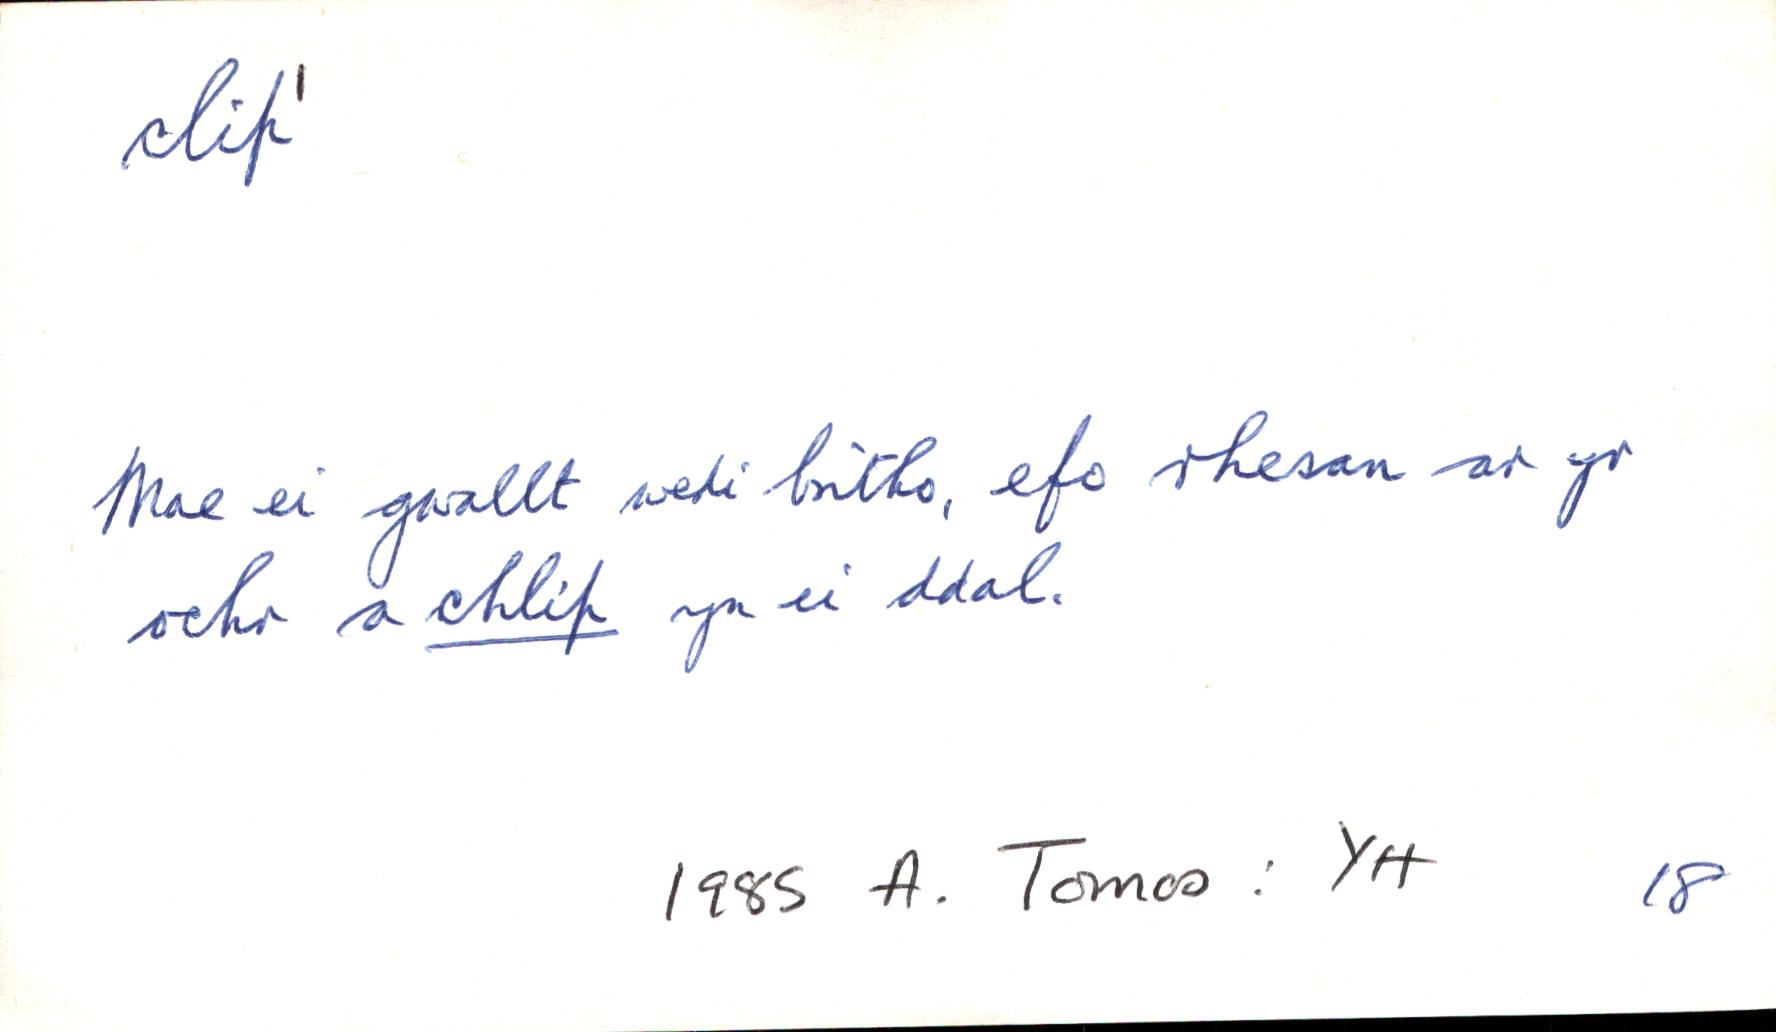 clip¹
Mae ei gwallt wedi britho, efo rhesan ar yr
ochr a chlip yn ei ddal.
1985 A. Tomos : YH 18